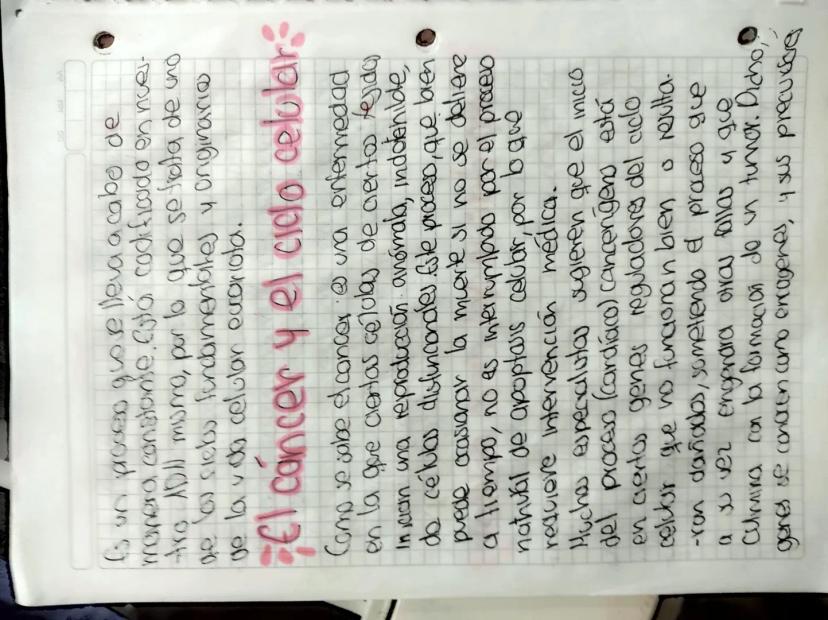 Es un proceso que se lleva a cabo de
manera constante. Está codificado en nues-
tro ADN mismo, por lo que se trata de uno
de los siete fundamentales y originarios
de la vida celular eucariota.
El cáncer y el ciclo celular
Como se sabe el cancer es una enfermedad
en la que ciertas células de ciertos tejidos
inician una reproducción anómala, indetenible,
de células disfuncionales. Este proceso, que bien
puede ocasionar la muerte si no se detiene
a tiempo, no es interrumpido por el proceso
natural de apoptosis celular, por lo que
requiere intervención médica.
Muchos especialistas sugieren que el inicio
del proceso (cardíaco) cancerígeno está
en ciertos genes reguladores del ciclo
celular que no funcionan bien o resulta-
-ron dañados, sometiendo el proceso que
a su vez engendra otras fallas y que
culmina con la formación de un tumor. Dicho,
genes se conocen como oncogenes, y sus precursores